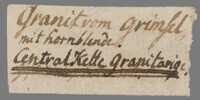 Granit vom Grimsel
mit hornblende.
Central Kette Granitartige